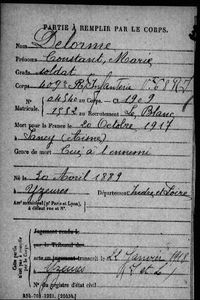 PARTIE À REMPLIR PAR LE CORPS.
Nom Delorme
Prénoms Constant, Marie
Grade soldat
Corps 409e Rgt Infanterie
N° au Corps. — 1909
Matricule. 1553 au Recrutement Le Blanc
Mort pour la France le 20 Octobre 1917
à Sancy (Aisne)
Genre de mort Tué à l'ennemi
Né le 20 Avril 1889
à Yzeures Département Indre et Loire
Arr¹ municipal (pʳ Paris et Lyon),
à défaut rue et N°.
Jugement rendu le
par le Tribunal de
acte ou jugement transcrit le 21 Janvier 1918
à Yzeures
N° du registre d'état civil